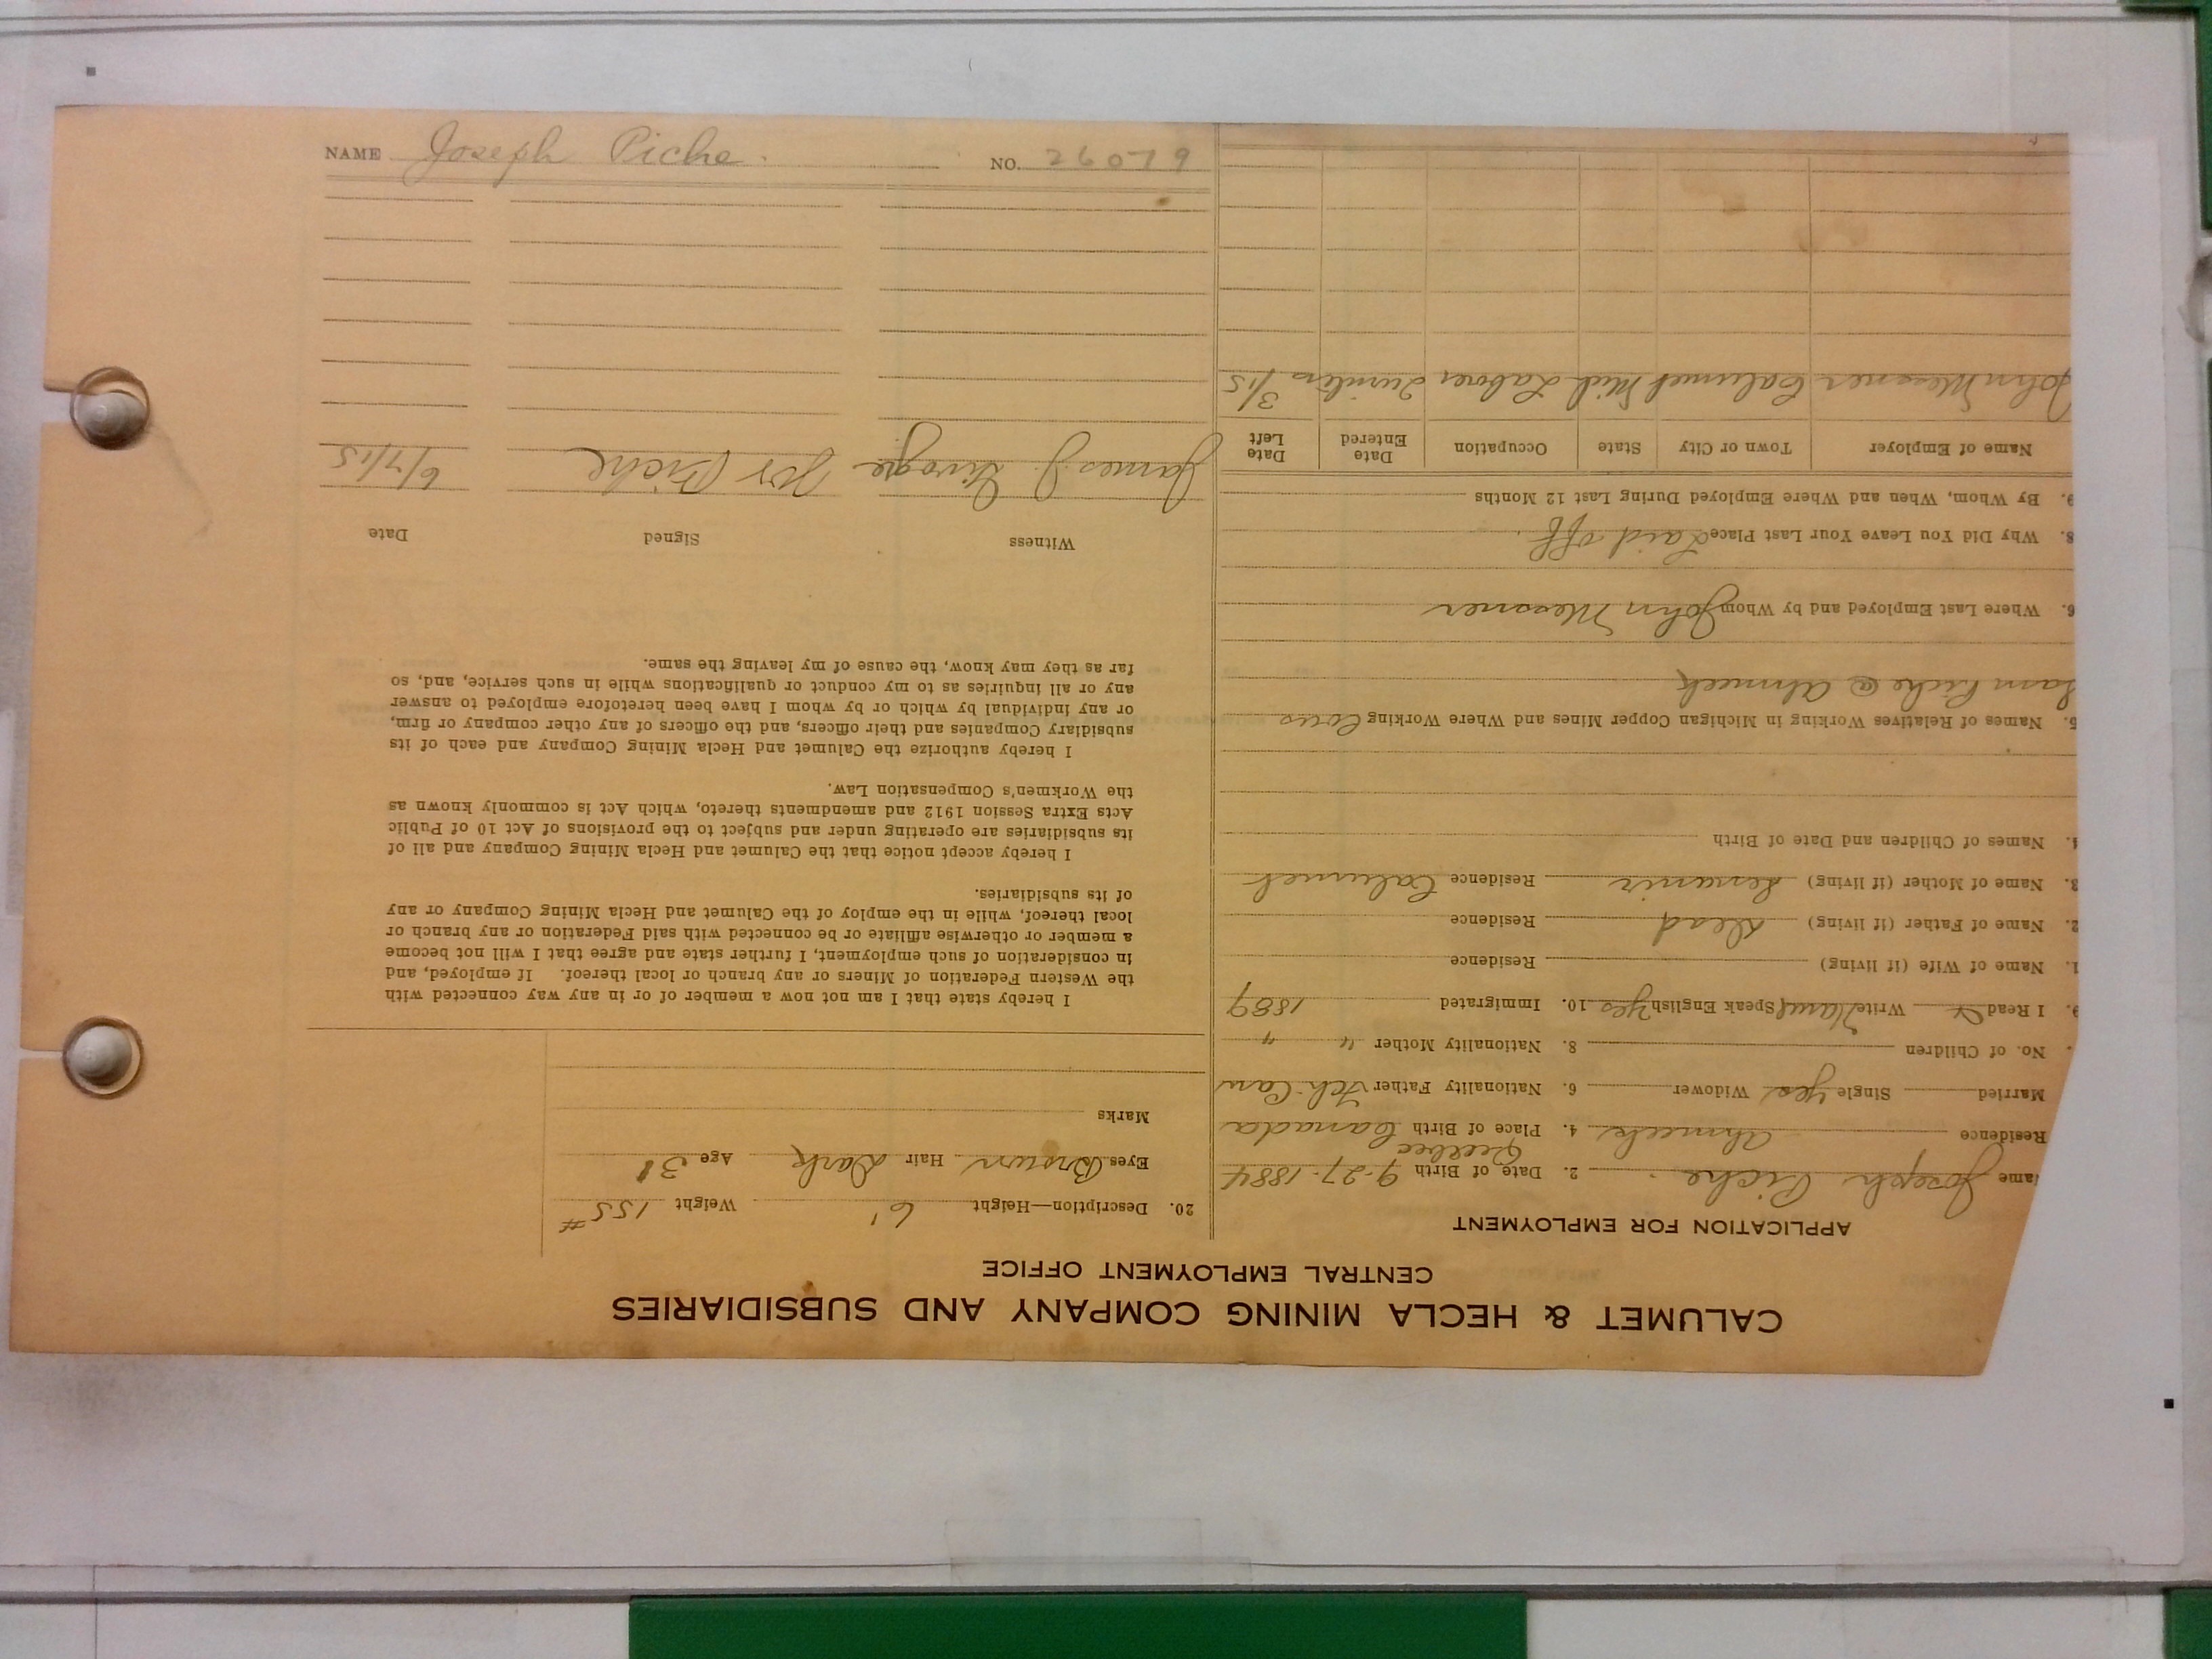 NAME Joseph Piche. NO. 26079
CALUMET & HECLA MINING COMPANY AND SUBSIDIARIES
CENTRAL EMPLOYMENT OFFICE
APPLICATION FOR EMPLOYMENT
ame Joseph Piche 2. Date of Birth 9-27-1884
Residence Ahmeek 4. Place of Birth Quebec Canada
Married Single yes Widower 6. Nationality Father Fch Can
No. of Children 8. Nationality Mother " "
9. I Read & Write Speak English yes 10. Immigrated 1889
1. Name of Wife (if living) Residence
2. Name of Father (if living) Dead Residence
3. Name of Mother (if living) Residence Calumet
4. Names of Children and Date of Birth
5. Names of Relatives Working in Michigan Copper Mines and Where Working Cous
Sam Piche @ Ahmeek
6. Where Last Employed and by Whom John Messner
8. Why Did You Leave Your Last Place Laid off
9. By Whom, When and Where Employed During Last 12 Months
Name of Employer Town or City State Occupation Date Entered Date Left
John Messner Calumet Mich Laborer 3/15
20. Description—Height 6' Weight 155#
Eyes Brown Hair Dark Age 31
Marks
I hereby state that I am not now a member of or in any way connected with
the Western Federation of Miners or any branch or local thereof. If employed, and
in consideration of such employment, I further state and agree that I will not become
a member or otherwise affiliate or be connected with said Federation or any branch or
local thereof, while in the employ of the Calumet and Hecla Mining Company or any
of its subsidiaries.
I hereby accept notice that the Calumet and Hecla Mining Company and all of
its subsidiaries are operating under and subject to the provisions of Act 10 of Public
Acts Extra Session 1912 and amendments thereto, which Act is commonly known as
the Workmen's Compensation Law.
I hereby authorize the Calumet and Hecla Mining Company and each of its
subsidiary Companies and their officers, and the officers of any other company or firm,
or any individual by which or by whom I have been heretofore employed to answer
any or all inquiries as to my conduct or qualifications while in such service, and, so
far as they may know, the cause of my leaving the same.
Witness Signed Date
James J. Jos Piche 6/7/15